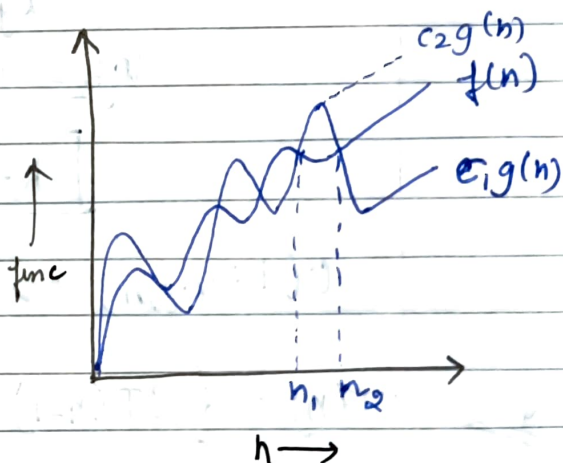 c₂g(n)
f(n)
c₁g(n)
func
n₁ n₂
n